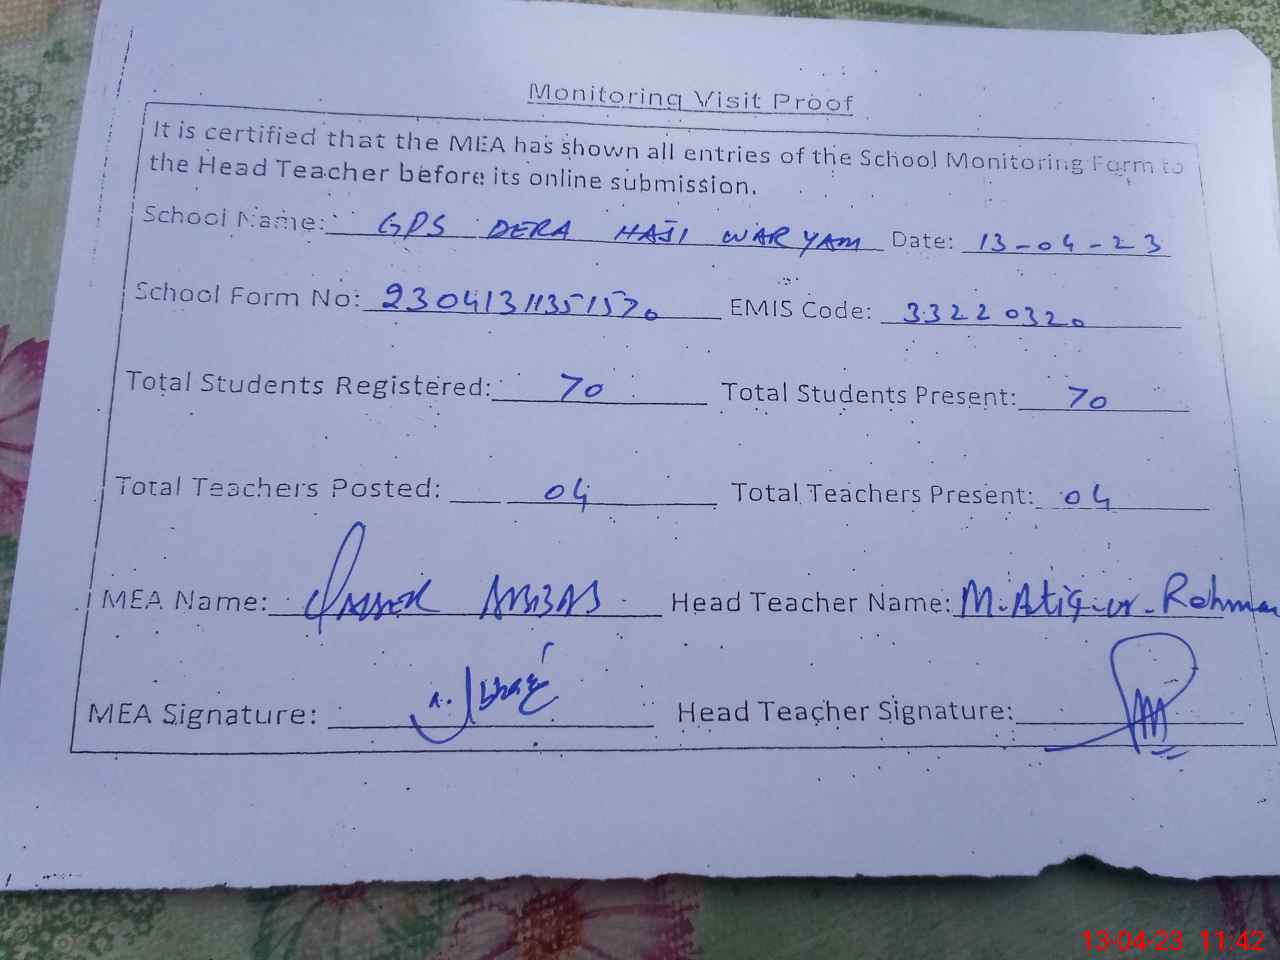 Monitoring Visit Proof
It is certified that the MEA has shown all entries of the School Monitoring Form to
the Head Teacher before its online submission.
School Name: GPS DERA HAJI WARYAM Date: 13-04-23
School Form No: 23041311351570 EMIS Code: 33220320
Total Students Registered: 70 Total Students Present: 70
Total Teachers Posted: 04 Total Teachers Present: 04
MEA Name: ABBAS Head Teacher Name: M. Atiq-ur-Rehman
MEA Signature: Head Teacher Signature:
13-04-23 11:42